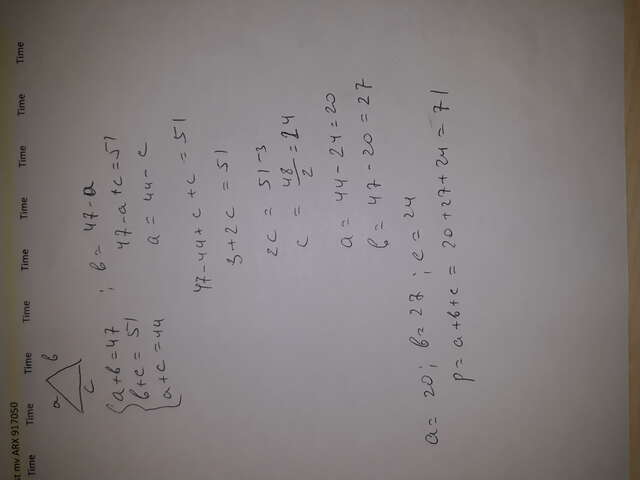 st mv ARX 917050
Time Time Time Time Time Time Time Time Time
a b
c
a+b=47 ; b= 47-a
b+c= 51 47-a+c=51
a+c=44 a= 44-c
47-44+c+c=51
3+2c=51
2c= 51-3
c= 48/2=24
a= 44-24=20
b= 47-20=27
a= 20; b=27; c=24
P= a+b+c= 20+27+24=71